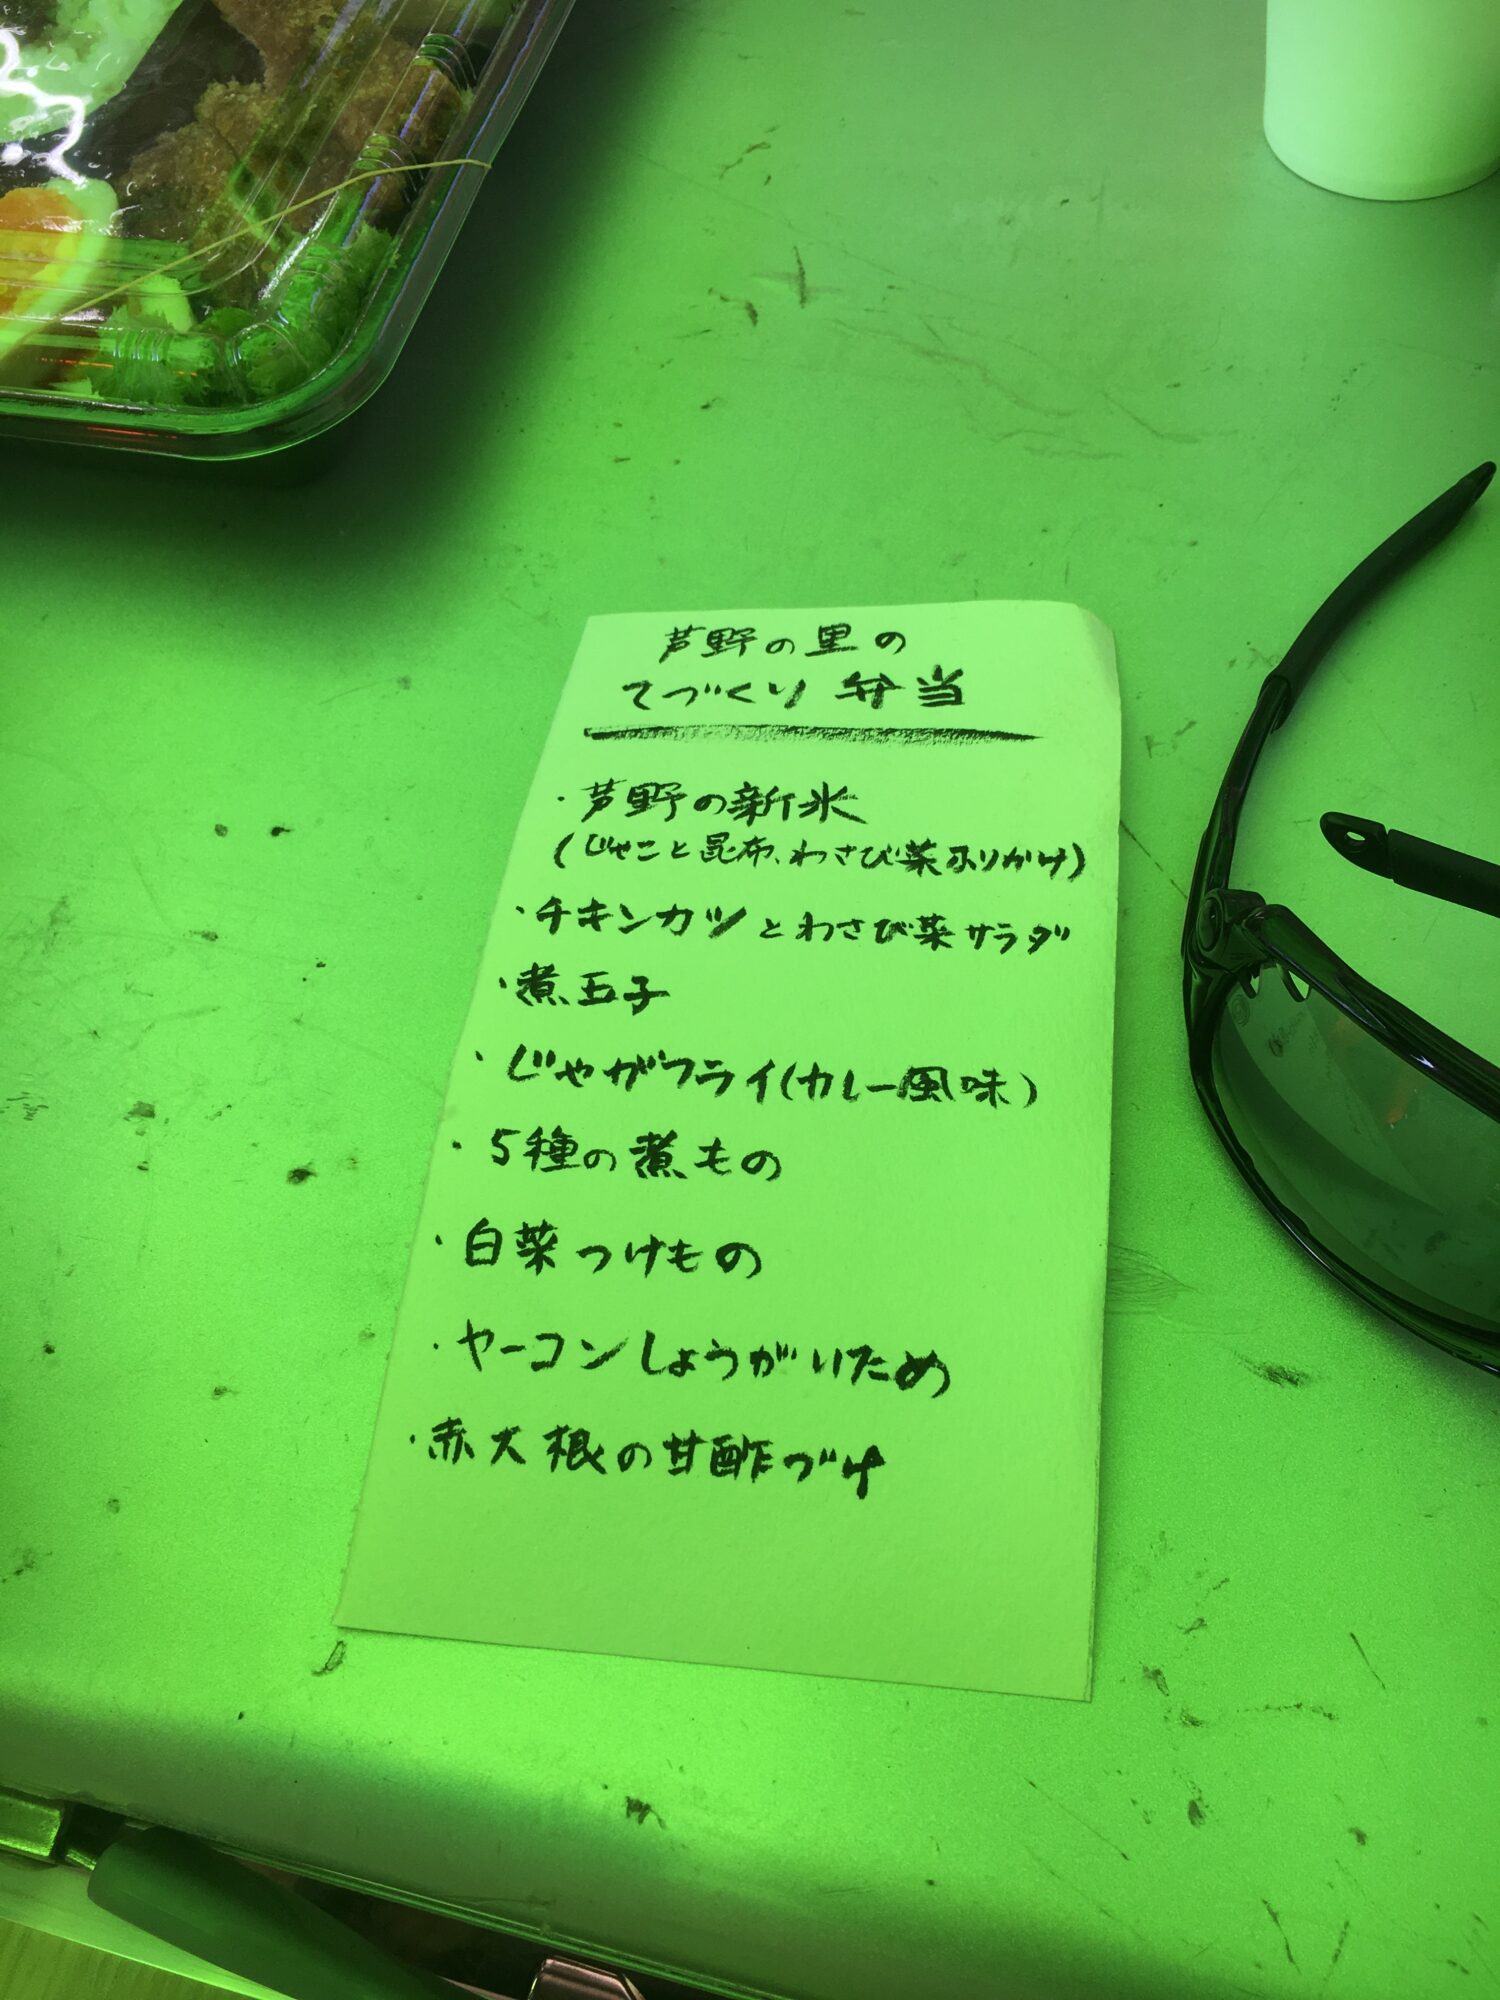 芦野の里の
てづくり弁当
・芦野の新米
(じゃこと昆布、わさび菜ふりかけ)
・チキンカツとわさび菜サラダ
・煮玉子
・じゃがフライ(カレー風味)
・5種の煮もの
・白菜つけもの
・ヤーコンしょうがいため
・赤大根の甘酢づけ